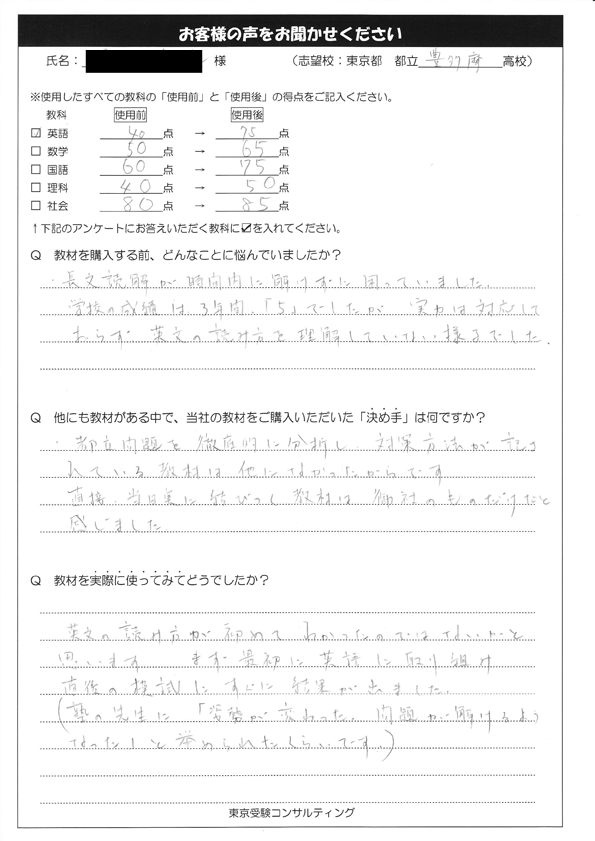 お客様の声をお聞かせください
氏名： 様 （志望校：東京都 都立 豊多摩 高校）
※使用したすべての教科の「使用前」と「使用後」の得点をご記入ください。
教科 使用前 使用後
☑ 英語 40 点 → 75 点
□ 数学 50 点 → 65 点
□ 国語 60 点 → 75 点
□ 理科 40 点 → 50 点
□ 社会 80 点 → 85 点
↑下記のアンケートにお答えいただく教科に☑を入れてください。
Q 教材を購入する前、どんなことに悩んでいましたか？
・長文読解が時間内に解けずに困っていました。
学校の成績は、3年間、「5」でしたが 実力は対応して
おらず 英文の読み方を理解していない様子でした。
Q 他にも教材がある中で、当社の教材をご購入いただいた「決め手」は何ですか？
・都立問題を徹底的に分析し、対策方法が記さ
れている教材は他になかったからです
直接、当日実に結びつく教材は御社のものだけだと
感じました
Q 教材を実際に使ってみてどうでしたか？
英文の読み方が初めてわかったのではないか…と
思います まず最初に英語に取り組み
直後の模試にすぐに結果が出ました。
(塾の先生に「姿勢が変わった。問題が解けるよう
なった！と誉められたくらいです。)
東京受験コンサルティング